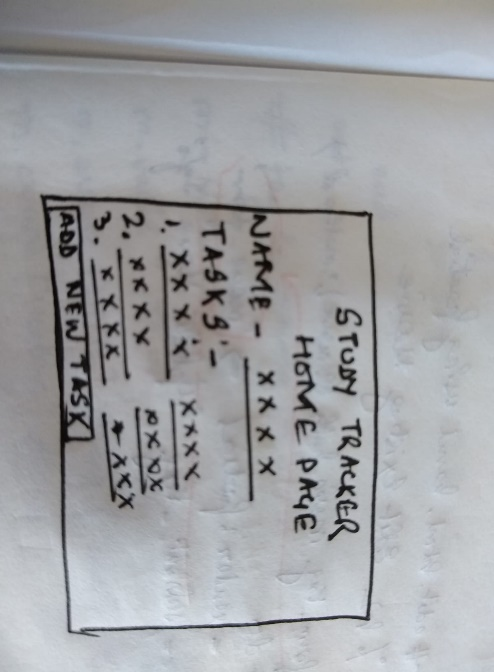 STUDY TRACKER
HOME PAGE
NAME - xxxx
TASKS:-
1. xxxx xxxx
2. xxxx xxxx
3. xxxx xxxx
ADD NEW TASK